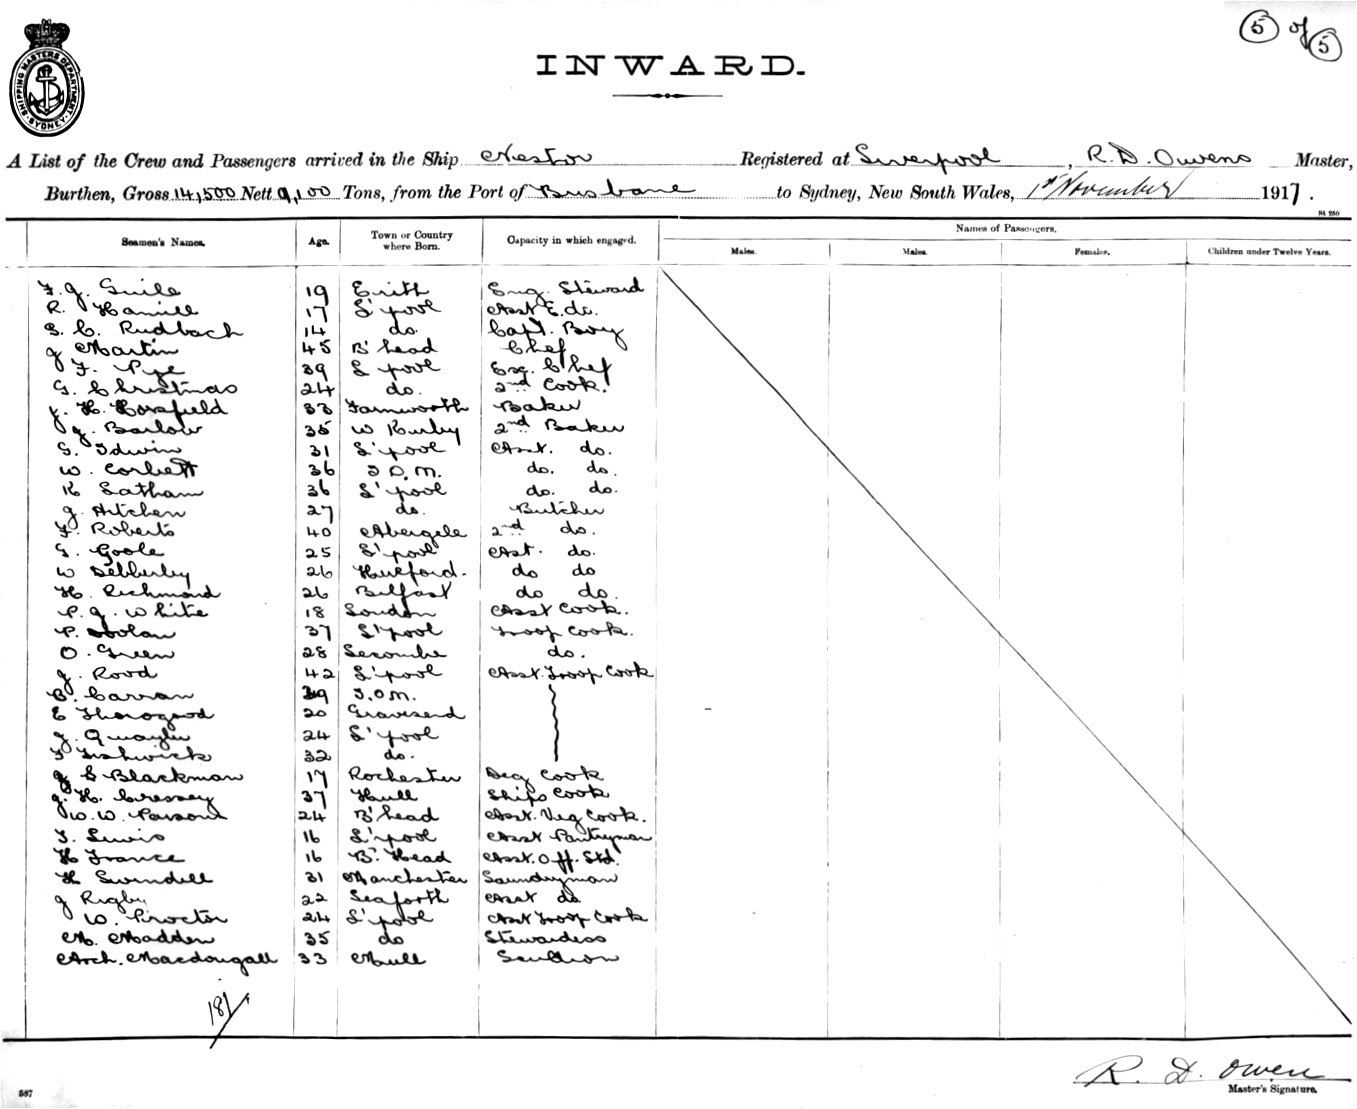 5 of 5
SHIPPING MASTERS DEPARTMENT
SYDNEY
INWARD.
A List of the Crew and Passengers arrived in the Ship Nestor Registered at Liverpool, R. D. Owens Master,
Burthen, Gross 14,500 Nett 9,100 Tons, from the Port of Brisbane to Sydney, New South Wales, 1st November 1917.
St. 250
Seamen's Names. Age. Town or Country where Born. Capacity in which engaged. Names of Passengers.
Males. Males. Females. Children under Twelve Years.
F. J. Guile 19 Erith Eng. Steward
R. Hamill 17 L'pool Asst E. do.
S. C. Rudbach 14 do. Capt. Boy
J Martin 45 B'head Chef
F. Pye 39 L'pool Chef
G. Christmas 24 do. 2nd Cook.
J. H. Horsfield 33 Farnworth Baker
J. Barlow 35 W Kirby 2nd Baker
S. Idwin 31 L'pool Asst. do.
W. Corbett 36 I.O.M. do. do.
R Latham 36 L'pool do. do.
J. Hitchen 27 do. Butcher
F. Roberts 40 Abergele 2nd do.
G. Goole 25 L'pool Asst. do.
W 26 do do
H. Richmond 26 Belfast do do.
P. J. White 18 London Asst Cook.
P. Nolan 37 L'pool Troop Cook.
O. Green 28 Seacombe do.
J. Rood 42 L'pool Asst. Troop Cook
C. Carran 39 I.O.M.
E Thorogood 20 Gravesend
J. Quayle 24 L'pool
F Fishwick 32 do.
J S Blackman 17 Rochester Veg Cook
J. H. Cressey 37 Hull Ships Cook
W. W. Parsons 24 B'head Asst. Veg Cook.
F. Lewis 16 L'pool Asst Pantryman
H France 16 B'Head Asst. Off. Std.
H Swindell 31 Manchester Laundryman
J Rigby 22 Seaforth Asst do
W. Proctor 24 L'pool Asst Troop Cook
M. Madden 35 do Stewardess
Arch. Macdougall 33 Mull Scullion
181
R. D. Owen
Master's Signature.
587